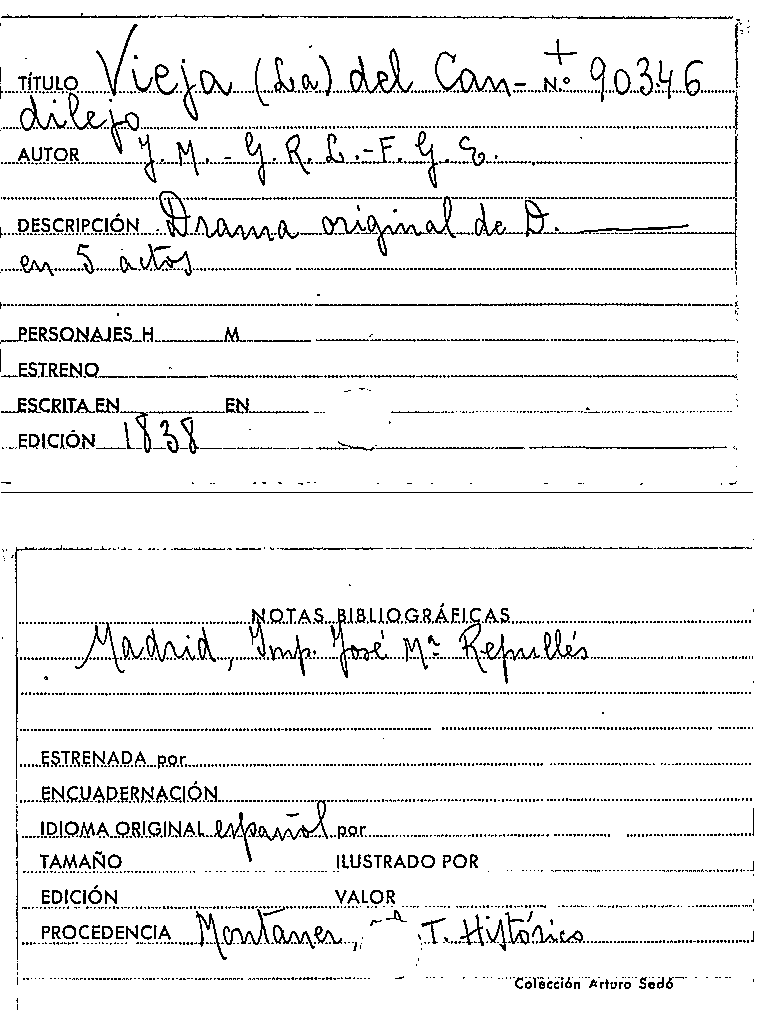 TÍTULO Vieja (La) del Can- + N.º 90346
dilejo
AUTOR J. M. - G. R. L. - F. G. E.
DESCRIPCIÓN Drama original de D. ———
en 5 actos
PERSONAJES H M
ESTRENO
ESCRITA EN EN
EDICIÓN 1838
NOTAS BIBLIOGRÁFICAS
Madrid, Imp. José Mª Repullés
ESTRENADA por
ENCUADERNACIÓN
IDIOMA ORIGINAL español por
TAMAÑO ILUSTRADO POR
EDICIÓN VALOR
PROCEDENCIA Montaner, T. Histórico
Colección Arturo Sedó